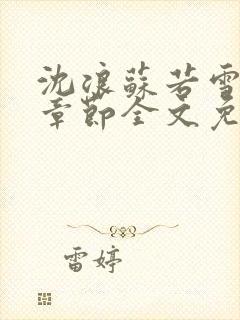 沈浪蘇若雪
章節全文免
雷婷